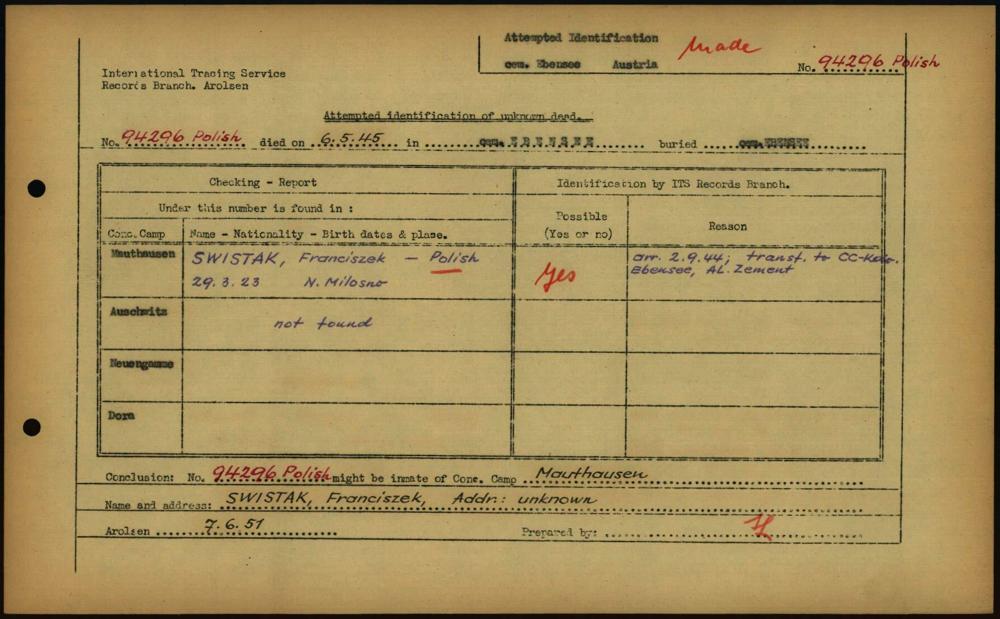 Attempted Identification
cem. Ebensee Austria
Made
No. 94296 Polish
International Tracing Service
Records Branch. Arolsen
Attempted identification of unknown dead.
No. 94296 Polish died on 6.5.45 in cem. EBENSEE buried cem. EBENSEE
Checking - Report
Identification by ITS Records Branch.
Under this number is found in :
Possible
(Yes or no)
Reason
Conc. Camp
Name - Nationality - Birth dates & place.
Mauthausen
SWISTAK, Franciszek - Polish
29.3.23 N. Milosno
Yes
arr. 2.9.44; transf. to CC-Kdo.
Ebensee, AL. Zement
Auschwitz
not found
Neuengamme
Dora
Conclusion: No. 94296 Polish might be inmate of Conc. Camp Mauthausen
Name and address: SWISTAK, Franciszek, Addr.: unknown
Arolsen 7.6.51
Prepared by: